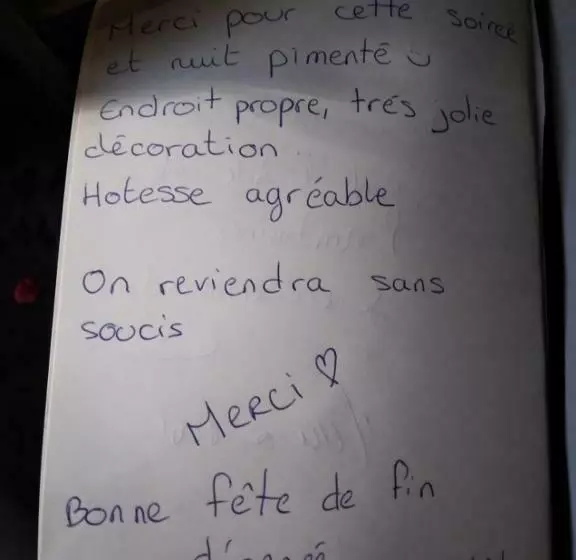 Merci pour cette soirée
et nuit pimenté
Endroit propre, très jolie
décoration
Hotesse agréable
On reviendra sans
soucis
Merci ♡
Bonne fête de fin